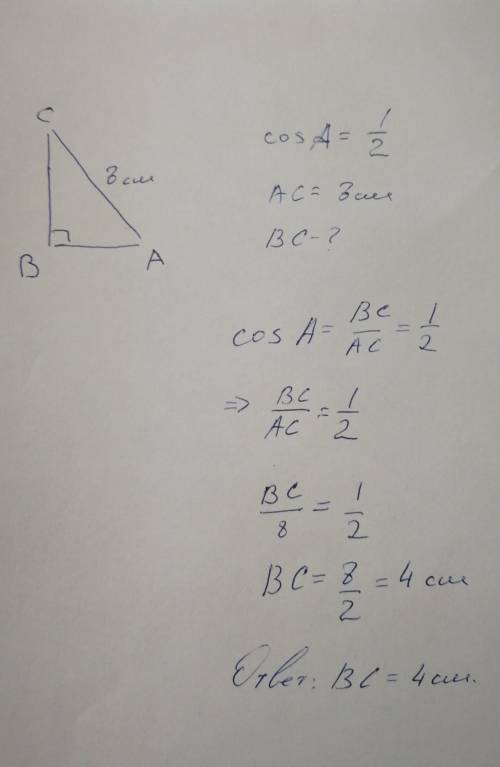 C
8 см
B A
cos A = 1/2
AC = 8 см
BC - ?
cos A = BC/AC = 1/2
=> BC/AC = 1/2
BC/8 = 1/2
BC = 8/2 = 4 см
Ответ: BC = 4 см.